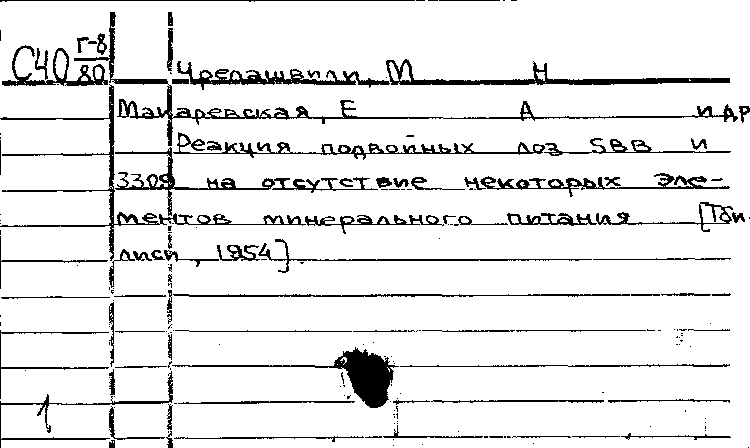 С40 Г-8/80
Чрелашвили, М Н
Макаревская, Е А и др
Реакция подвойных лоз 5ВВ и
3309 на отсутствие некоторых эле-
ментов минерального питания [Тби-
лиси, 1954].
1